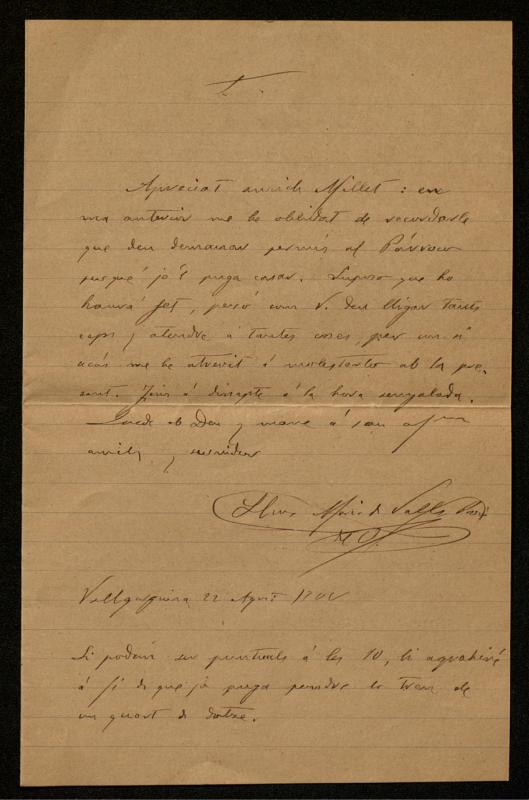 Apreciat amich Millet: en
ma anterior me he oblidat de recordarle
que deu demanar permís al Párroco
perque jo 'l puga casar. Suposo que ho
haurá fet, peró com V. deu lligar tants
caps y atendre á tantes coses, per un si
acás me he atrevit á molestarlo ab la pre-
sent. Fins á dissapte á la hora senyalada.
Quede ab Deu y mane á son afm
amich y servidor
Lluis Mª de Valls Pbre
M. O.
Vallgorguina 22 Agost
Si podem ser puntuals á les 10, li agrahiré
á fi de que jo puga pendre lo tren de
un quart de dotze.